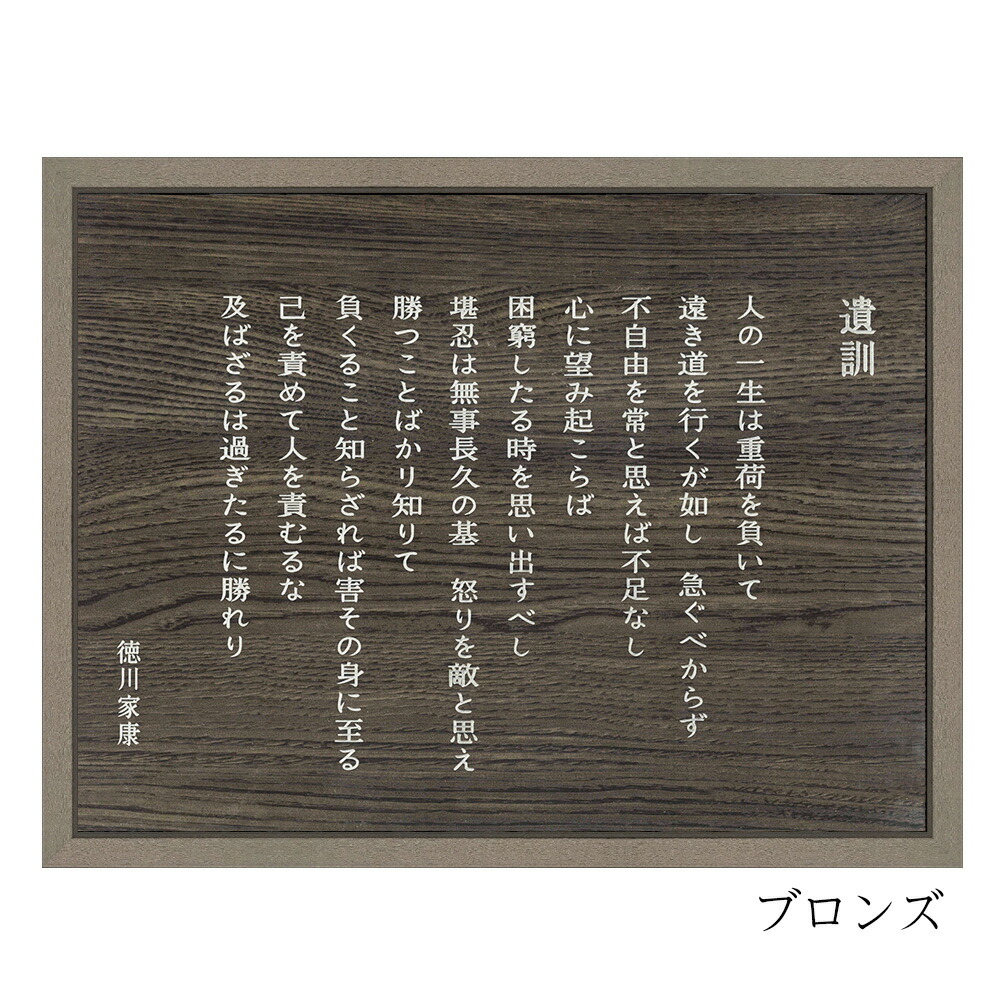 遺訓
人の一生は重荷を負いて
遠き道を行くが如し　急ぐべからず
不自由を常と思えば不足なし
心に望み起こらば
困窮したる時を思い出すべし
堪忍は無事長久の基　怒りを敵と思え
勝つことばかり知りて
負くること知らざれば害その身に至る
己を責めて人を責むるな
及ばざるは過ぎたるに勝れり
徳川家康
ブロンズ